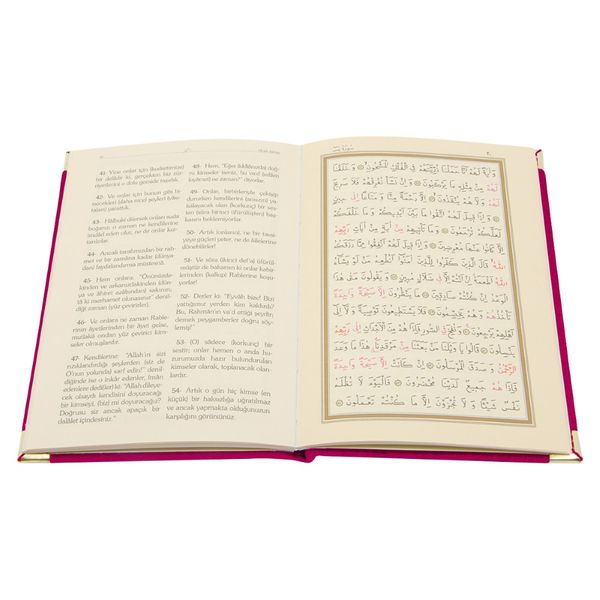 41- Yine onlar için (kudretimize)
bir delilde ki, gerçekten biz
zürriyetlerini o dolu gemide taşıdık.
42- Ve onlar için bunun gibi
binecekleri (daha nice) şeyleri
yarattık.
43- Hâlbuki dilemek olsaydık onları suda
boğarız; o zaman ne kendilerine
imdâd eden olur, ne de onlar kur-
tarılırlar.
44- Ancak tarafımızdan bir rah-
met ve bir zamâna kadar (dünya-
dan) faydalandırma müstesnâ.
45- Hem onlara: "Önünüzde-
kinden ve arkanızdakinden (dünya
ve âhiret azâbından) sakının;
tâ ki merhamet olunasınız" denil-
diği zaman (yüz çevirirler).
46- Ve onlara ne zaman Rableri-
nin âyetlerinden bir âyet gelse,
mutlaka ondan yüz çevirici kim-
seler olmuşlardır.
47- Kendilerine: "Allah'ın sizi
rızıklandırdığı şeylerden (siz de
O'nun yolunda) sarf edin!" denil-
diğinde ise o inkâr edenler, îmân
edenlere dedi(ler) ki: "Allah dileye-
cek olsaydı kendisini doyuracağı
bir kimseyi, (biz) mi doyuracağız?
Doğrusu siz ancak apaçık bir
dalâlet içindesiniz."
48- Hem, "Eğer (iddiânızda) doğ-
ru kimseler iseniz, bu vaad (edilen
kıyâmet) ne zaman?" diyorlar.
49- Onlar, birbirleriyle çekişip
dururken kendilerini (ansızın) ya-
kalayacak olan (korkunç) bir ses-
ten (sûra birinci üfürülüşten) baş-
kasını beklemiyorlar.
50- Artık (onlar) ne bir tavsi-
yeye güçleri yeter, ne de âilelerine
dönebilirler!
51- Ve sûra (ikinci def'a) üfürül-
müştür de bakarsın ki onlar kabir-
lerinden (kalkıp) Rablerine koşu-
yorlar.
52- Derler ki: "Eyvâh bize! Bizi
yattığımız yerden kim kaldırdı?
Bu, Rahmân'ın va'd ettiği şeydir;
demek peygamberler doğru söy-
lemiş!"
53- (O) sâdece (korkunç) bir
sestir; onlar hemen o anda hu-
zurumuzda hazır bulundurulan
kimseler olarak, toplanacak olan-
lardır.
54- Artık o gün hiç kimse (en
küçük) bir haksızlığa uğratılmaz
ve ancak yapmakta olduğunuzun
karşılığını görürsünüz.
وَاٰيَةٌ لَهُمْ اَنَّا حَمَلْنَا ذُرِّيَّتَهُمْ فِى الْفُلْكِ الْمَشْحُونِ ۝ وَخَلَقْنَا
لَهُمْ مِنْ مِثْلِهٖ مَا يَرْكَبُونَ ۝ وَاِنْ نَشَأْ نُغْرِقْهُمْ فَلَا صَرِيخَ
لَهُمْ وَلَا هُمْ يُنْقَذُونَ ۝ اِلَّا رَحْمَةً مِنَّا وَمَتَاعًا اِلٰى
حِينٍ ۝ وَاِذَا قِيلَ لَهُمُ اتَّقُوا مَا بَيْنَ اَيْدِيكُمْ وَمَا خَلْفَكُمْ
لَعَلَّكُمْ تُرْحَمُونَ ۝ وَمَا تَأْتِيهِمْ مِنْ اٰيَةٍ مِنْ اٰيَاتِ رَبِّهِمْ
اِلَّا كَانُوا عَنْهَا مُعْرِضِينَ ۝ وَاِذَا قِيلَ لَهُمْ اَنْفِقُوا مِمَّا رَزَقَكُمُ
اللّٰهُ قَالَ الَّذِينَ كَفَرُوا لِلَّذِينَ اٰمَنُوا اَنُطْعِمُ مَنْ لَوْ يَشَاءُ
اللّٰهُ اَطْعَمَهُ اِنْ اَنْتُمْ اِلَّا فِى ضَلَالٍ مُبِينٍ ۝ وَيَقُولُونَ مَتٰى هٰذَا
الْوَعْدُ اِنْ كُنْتُمْ صَادِقِينَ ۝ مَا يَنْظُرُونَ اِلَّا صَيْحَةً وَاحِدَةً
تَأْخُذُهُمْ وَهُمْ يَخِصِّمُونَ ۝ فَلَا يَسْتَطِيعُونَ تَوْصِيَةً وَلَا اِلٰى
اَهْلِهِمْ يَرْجِعُونَ ۝ وَنُفِخَ فِى الصُّورِ فَاِذَا هُمْ مِنَ الْاَجْدَاثِ اِلٰى رَبِّهِمْ
يَنْسِلُونَ ۝ قَالُوا يَا وَيْلَنَا مَنْ بَعَثَنَا مِنْ مَرْقَدِنَا هٰذَا مَا وَعَدَ
الرَّحْمٰنُ وَصَدَقَ الْمُرْسَلُونَ ۝ اِنْ كَانَتْ اِلَّا صَيْحَةً وَاحِدَةً
فَاِذَا هُمْ جَمِيعٌ لَدَيْنَا مُحْضَرُونَ ۝ فَالْيَوْمَ لَا تُظْلَمُ
نَفْسٌ شَيْئًا وَلَا تُجْزَوْنَ اِلَّا مَا كُنْتُمْ تَعْمَلُونَ ۝